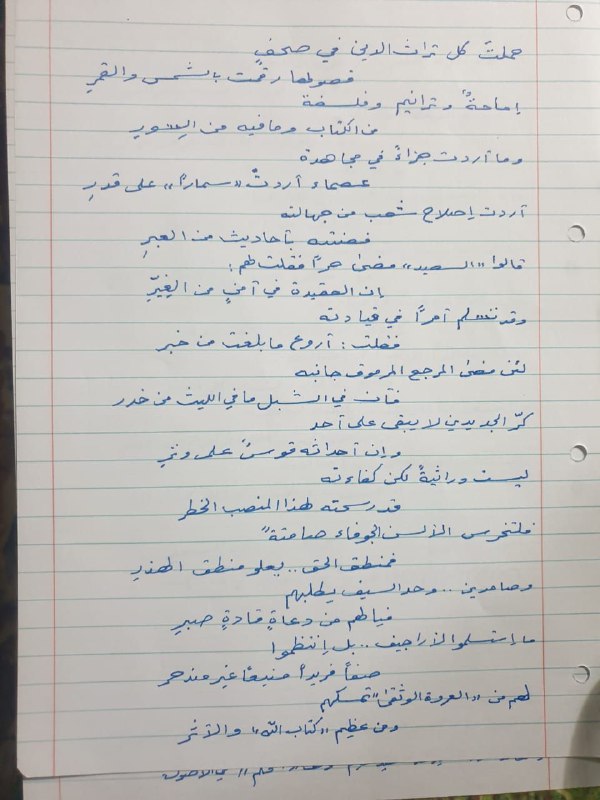 حملتَ كل تراث الدين في صحفٍ
فصولها رقمت بالشمس والقمرِ
إماحةٌ وترانيم وفلسفة
من الكتاب ومافيه من السورِ
وما أردت جزاءً في مجاهدة
عصماء أردتْ «سمارا» على قدرِ
أردت إصلاح شعب من جهالته
فضنته بأحاديث من العبرِ
قالوا «السعيد» مضىٰ هرًا فقلت لهم :
إن العقيدة في أمنٍ من الغِيَرِ
وقد تسلم أمرًا في قيادته
فقلت : أروع ما بلغت من خبر
لئن مضىٰ المرجع المرموق جانبه
فأن في الشبل ما في الليث من خدر
كرّ الجديدين لا يبقى على أحد
وإن أحداثه قوسٌ على وترِ
ليست وراثيةً لكن كفاءته
قد رسحته لهذا المنصب الخطر
فلتخرس الألسن الجوفاء صامتةً
فمنطق الحق .. يعلو منطق الهذرِ
وصامدين .. وحد السيف يطلبهم
فيالهم من دعاةٍ قادةٍ صبرِ
ما استسلموا لأراجيف .. بل إنتظموا
صفاً فريداً منيعاً غير مندحر
لهم من «العروة الوثقىٰ» تمسكهم
ومن عظيم «كتاب الله» والأثرِ